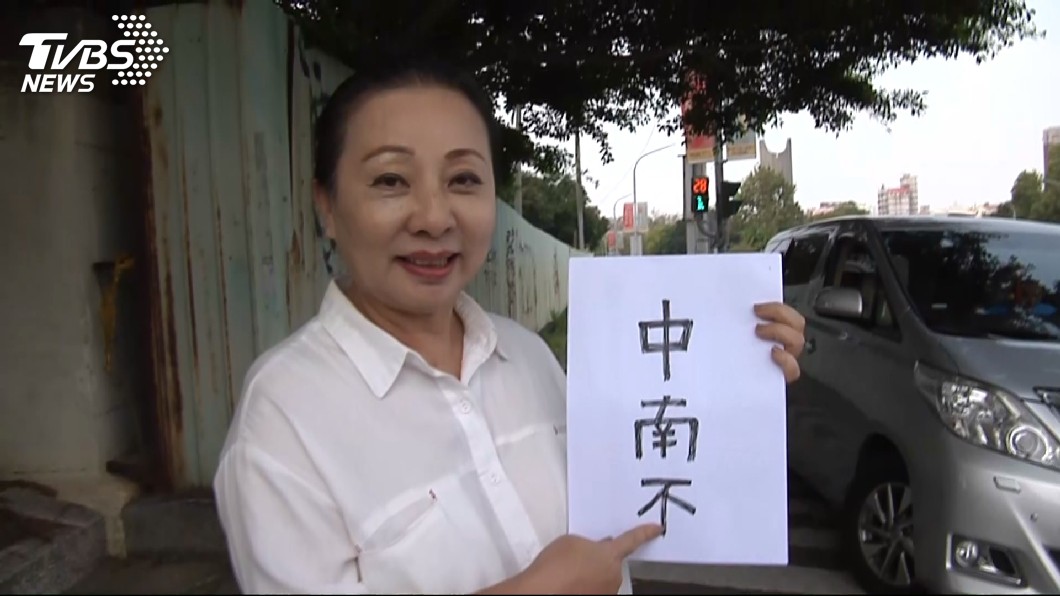 TVBS
NEWS
28
中
南
不